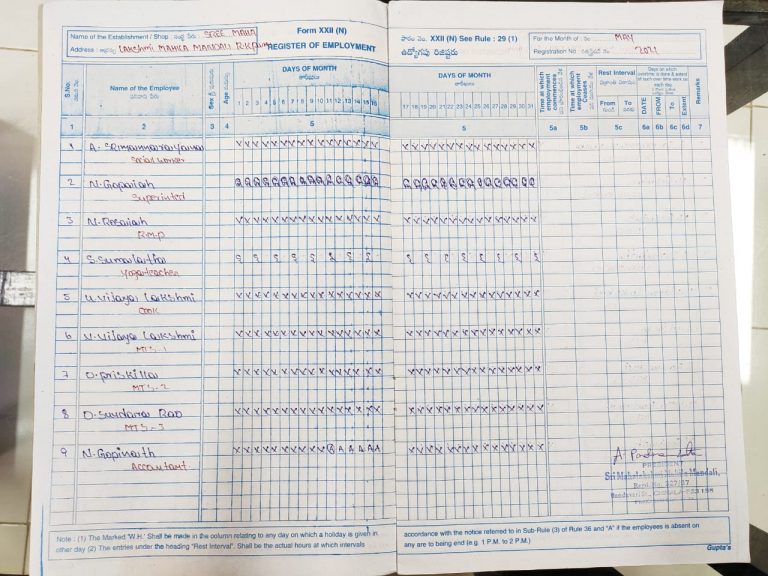 Name of the Establishment / Shop : సంస్థ పేరు : SREE MAHA
Address : LAKSHMI MAHILA MANDALI
Form XXII (N)
REGISTER OF EMPLOYMENT
ఫారం నెం. XXII (N) See Rule : 29 (1)
ఉద్యోగపు రిజిష్టరు
For the Month of : MAY
Registration No 2021
S.No.
Name of the Employee
Sex
Age
DAYS OF MONTH
1 2 3 4 5 6 7 8 9 10 11 12 13 14 15 16
DAYS OF MONTH
17 18 19 20 21 22 23 24 25 26 27 28 29 30 31
Time at which employment commences
Time at which employment Ceases
Rest Interval
From To
DATE FROM To Extent
Remarks
1 2 3 4 5 5 5a 5b 5c 6a 6b 6c 6d 7
1 A. Srimannarayana
Social worker
2 N. Gopaiah
Superinted
3 N. Rosaiah
R.M.P
4 S. Sumalatha
Yoga teacher
5 U. Vijaya Lakshmi
Cook
6 V. Vijaya Lakshmi
MTS-1
7 D. Priskilla
MTS-2
8 D. Sundara Rao
MTS-3
9 N. Gopinath
Accountant
PRESIDENT
Sri Mahalakshmi Mahila Mandali,
Note : (1) The Marked "W.H.' Shall be made in the column relating to any day on which a holiday is given in
other day (2) The entries under the heading "Rest Interval". Shall be the actual hours at which intervals
accordance with the notice referred to in Sub-Rule (3) of Rule 36 and "A" if the employees is absent on
any are to being end (e.g. 1 P.M. to 2 P.M.)
Gupta's